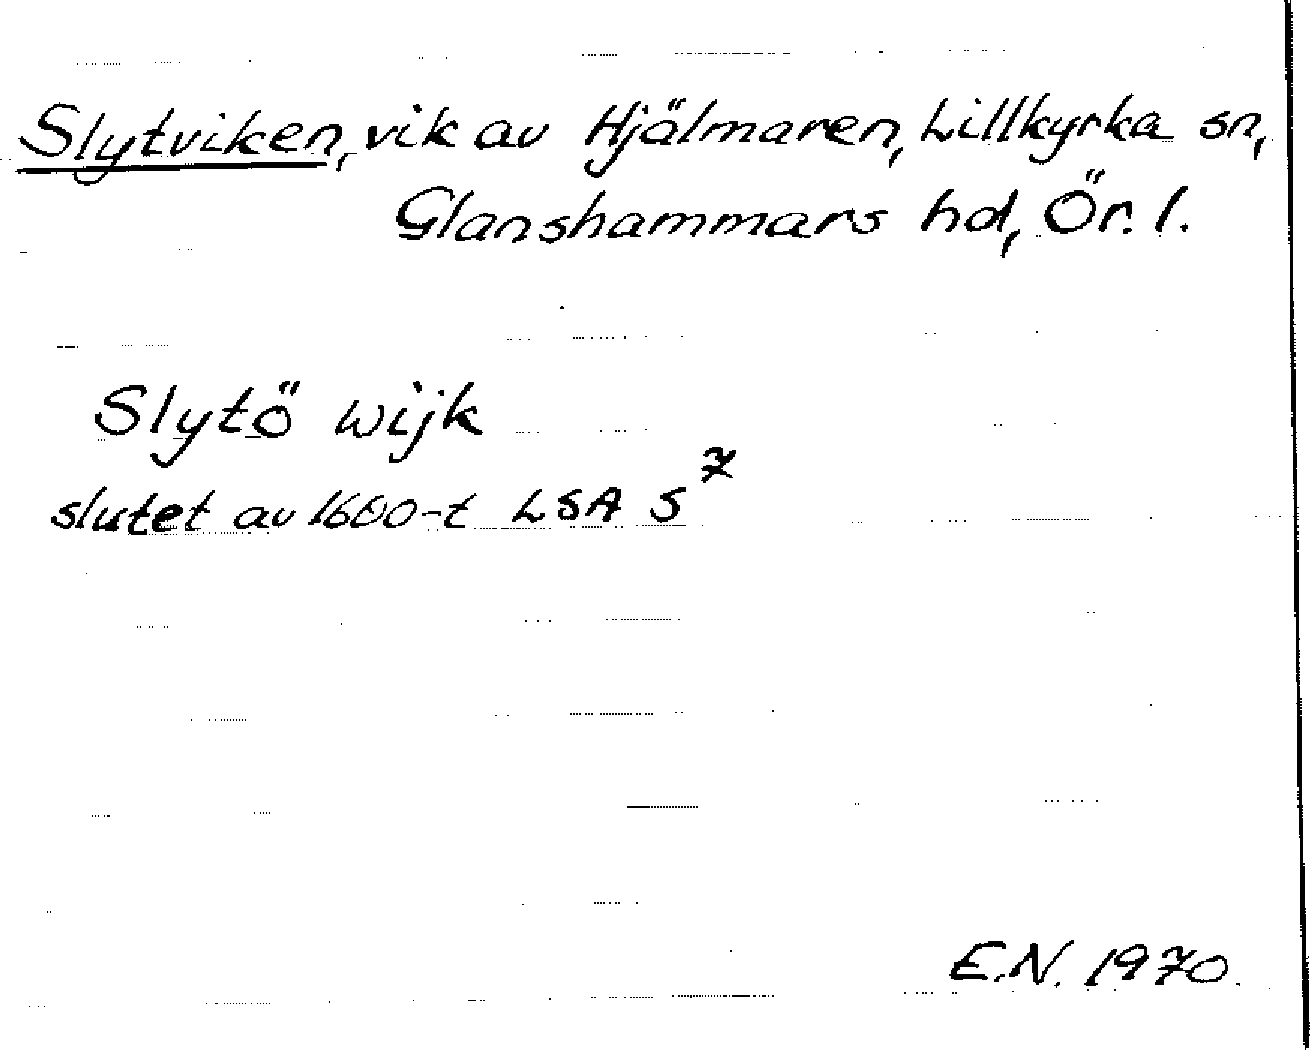 Slytviken, vik av Hjälmaren, Lillkyrka sn,
Glanshammars hd, Ör. l.
Slytö wijk
slutet av 1600-t LSA S⁷
E.N. 1970.